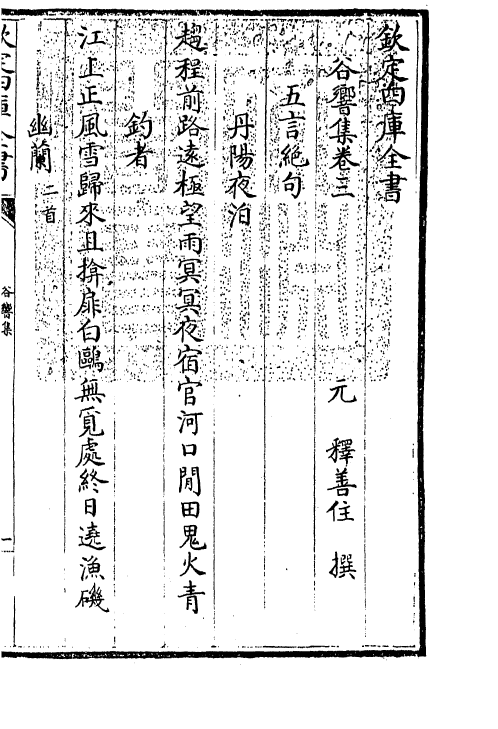 欽定四庫全書
谷響集卷三
元 釋善住 撰
五言絶句
丹陽夜泊
趲程前路遠極望雨冥冥夜宿官河口閒田鬼火青
釣者
江上正風雪歸來且揜扉白鷗無覓處終日遶漁磯
幽蘭二首
欽定四庫全書
谷響集
一